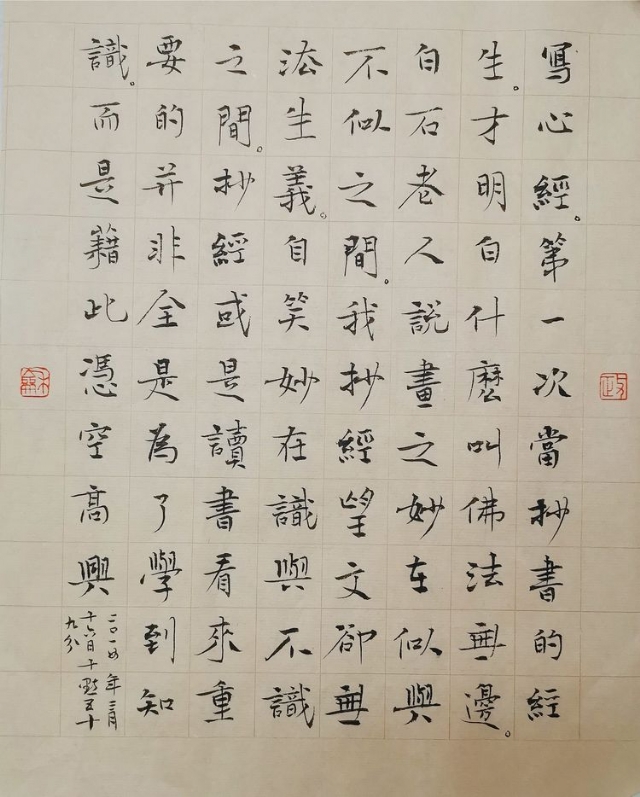 寫心經。第一次當抄書的經
生。才明白什麼叫佛法無邊。
白石老人說畫之妙在似與
不似之間。我抄經望文卻無
法生義。自笑妙在識與不識
之間。抄經或是讀書看來重
要的并非全是為了學到知
識。而是籍此憑空高興
二〇一四年三月
十六日十點五十
九分